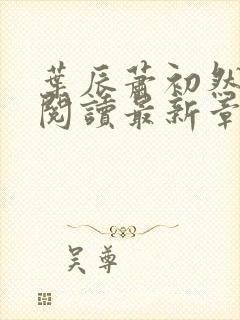 葉辰蕭初然
閱讀最新章
吴尊